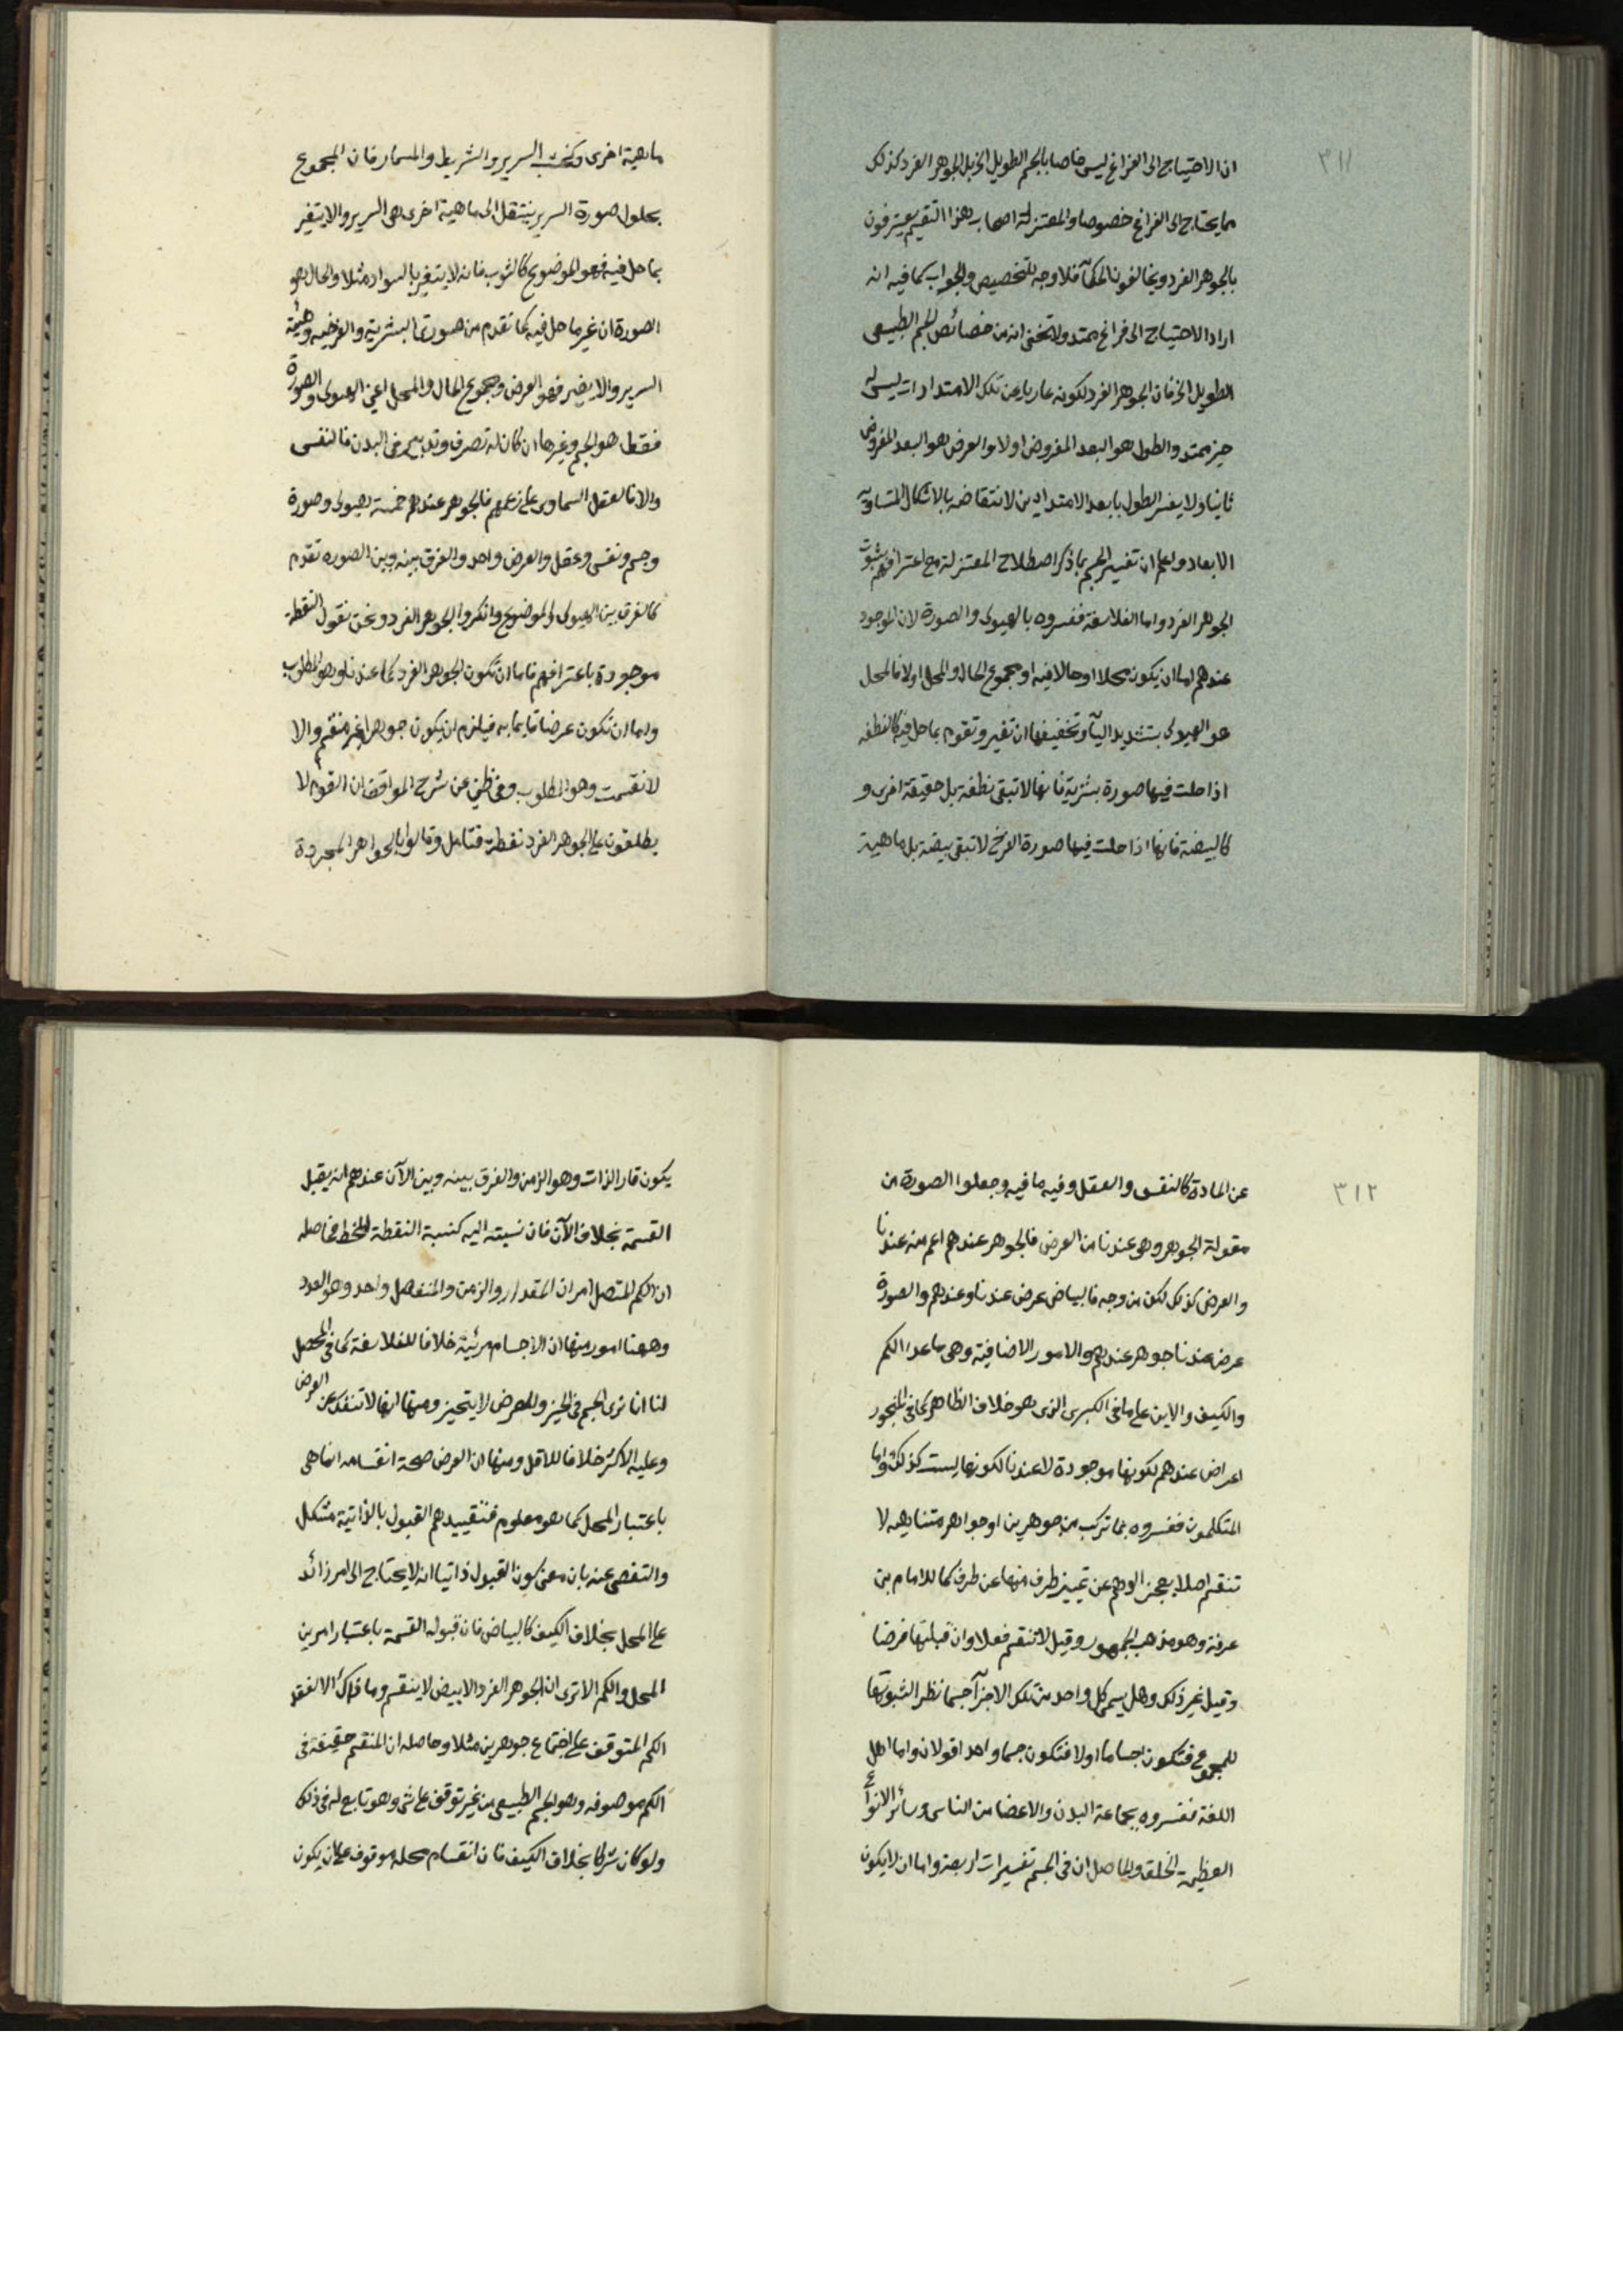 ٣١١
ان الاحتياج الى الفراغ ليس خاصا بالجسم الطويل الخ بل الجوهر الفرد كذلك
مما يحتاج الى الفراغ خصوصا والمعتزلة اصحاب هذا التقسيم يعترفون
بالجوهر الفرد ويخالفون الحكمآ فلا وجه للتخصيص والجواب كما فيه انه
اراد الاحتياج الى فراغ ممتد ولا يخفى انه من خصائص الجسم الطبيعى
الطويل الخ فان الجوهر الفرد لكونه عاريا عن تلك الامتدادات ليس له
حيز ممتد والطول هو البعد المفروض اولا والعرض هو البعد المفروض
ثانيا ولا يفسر الطول بابعد الامتدادين لانتقاضه بالاشكال المتساوية
الابعاد واعلم ان تفسير الجسم بما ذكر اصطلاح المعتزلة مع اعترافهم بثبوت
الجوهر الفرد واما الفلاسفة ففسروه بالهيولى والصورة لان الموجود
عندهم اما ان يكون محلا او حالا فيه او مجموع الحال والمحل اولا فالمحل
هو الهيولى بتشديد اليآ وتخفيفها ان تغير وتقوم بما حل فيه كالنطفة
اذا حلت فيها صورة بشرية فانها لا تبقى نطفة بل حقيقة اخرى و
كالبيضة فانها اذا حلت فيها صورة الفرخ لا تبقى بيضة بل ماهية
ماهية اخرى وكخشب السرير والشريط والمسمار فان المجموع
بحلول صورة السرير ينتقل الى ماهية اخرى هى السرير والا يتغير
بما حل فيه فهو الموضوع كالثوب فانه لا يتغير بالسواد مثلا والحال هو
الصورة ان غير ما حل فيه كما تقدم من صورتى البشرية والفرخيه وهيئة
السرير والا يغير فهو العرض ومجموع الحال والمحل اعنى الهيولى والصورة
فقط هو الجسم وغيرها ان كان له تصرف وتدبير فى البدن فالنفس
والا فالعقل السماوى على زعمهم فالجوهر عندهم خمسة هيولى وصورة
وجسم ونفس وعقل والعرض واحد والفرق بينه وبين الصوره تقدم
كالفرق بين الهيولى والموضوع وانكروا الجوهر الفرد ونحن نقول النقطة
موجودة باعترافهم فاما ان تكون الجوهر الفرد كما عندنا وهو المطلوب
واما ان تكون عرضا قايما به فيلزم ان يكون جوهرا غير منقسم والا
لانقسمت وهو المطلوب وفى ظنى عن شرح المواقف ان القوم لا
يطلقون على الجوهر الفرد نقطة فتامل وقالوا بالجواهر المجردة
٣١٢
عن المادة كالنفس والعقل وفيه ما فيه وجعلوا الصورة من
مقولة الجوهر وهو عندنا من العرض فالجوهر عندهم اعم منه عندنا
والعرض كذلك لكن من وجه فالبياض عرض عندنا وعندهم والصورة
عرض عندنا جوهر عندهم والامور الاضافية وهى ما عدا الكم
والكيف والاين على ما فى الكبرى الذى هو خلاف الظاهر كما فى المنجور
اعراض عندهم لكونها موجودة لا عندنا لكونها ليست كذلك واما
المتكلمون ففسروه بما تركب من جوهرين او جواهر متناهيه لا
تنقسم اصلا يعجز الوهم عن تمييز طرف منها عن طرف كما للامام بن
عرفة وهو مذهب الجمهور وقيل لا تنقسم فعلا وان قبلتها فرضا
وقيل غير ذلك وهل يسمى كل واحد من تلك الاجزآ جسما نظر الثبوتها
للمجموع فتكون اجساما اولا فتكون جسما واحدا قولان واما اهل
اللغة ففسروه بجماعة البدن والاعضا من الناس وسائر الانواع
العظيمة الخلق والحاصل ان فى الجسم تفسيرات اربعة واما ان لا يكون
يكون قار الذات وهو الزمن والفرق بينه وبين الآن عندهم انه يقبل
القسمة بخلاف الآن فان نسبته اليه كنسبة النقطة للخط فحاصله
ان الكم المتصل امران المقدار والزمن والمنفصل واحد وهو العدد
وههنا امور منها ان الاجسام مرئية خلافا للفلاسفة كما فى المحصل
لنا انا نرى الجسم فى الحيز والعرض لا يتحيز ومنها انها لا تنفك عن العرض
وعليه الاكثر خلافا للاقل ومنها ان العرض صحة انقسامه انما هى
باعتبار المحل كما هو معلوم فتقييدهم القبول بالذاتية مشكل
والتفصى عنه بان معنى كون القبول ذاتيا انه لا يحتاج الى امر زائد
على المحل بخلاف الكيف كالبياض فان قبوله القسمة باعتبار امرين
المحل والكم الا ترى ان الجوهر الفرد الابيض لا ينقسم وما ذاك الا لفقد
الكم المتوقف على اجتماع جوهرين مثلا وحاصله ان المنقسم حقيقة فى
الكم موصوفه وهو الجسم الطبيعى من غير توقف على شى وهو تابع له فى ذلك
ولو كان شركا بخلاف الكيف فان انقسام محله موقوف على ان يكون